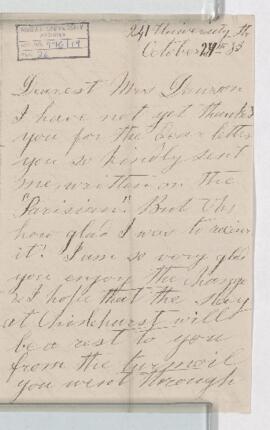 McGILL UNIVERSITY
ARCHIVES
ACC. NO. 976/19
REF. 26
241 University St
October 24th 83
Dearest Mrs Dawson
I have not yet thanked
you for the dear letter
you so kindly sent
me written on the
"Parisian." But Oh!
how glad I was to receive
it! I am so very glad
you enjoy the change
& I hope that the stay
at Chislehurst will
be a rest to you
from the turmoil
you went through